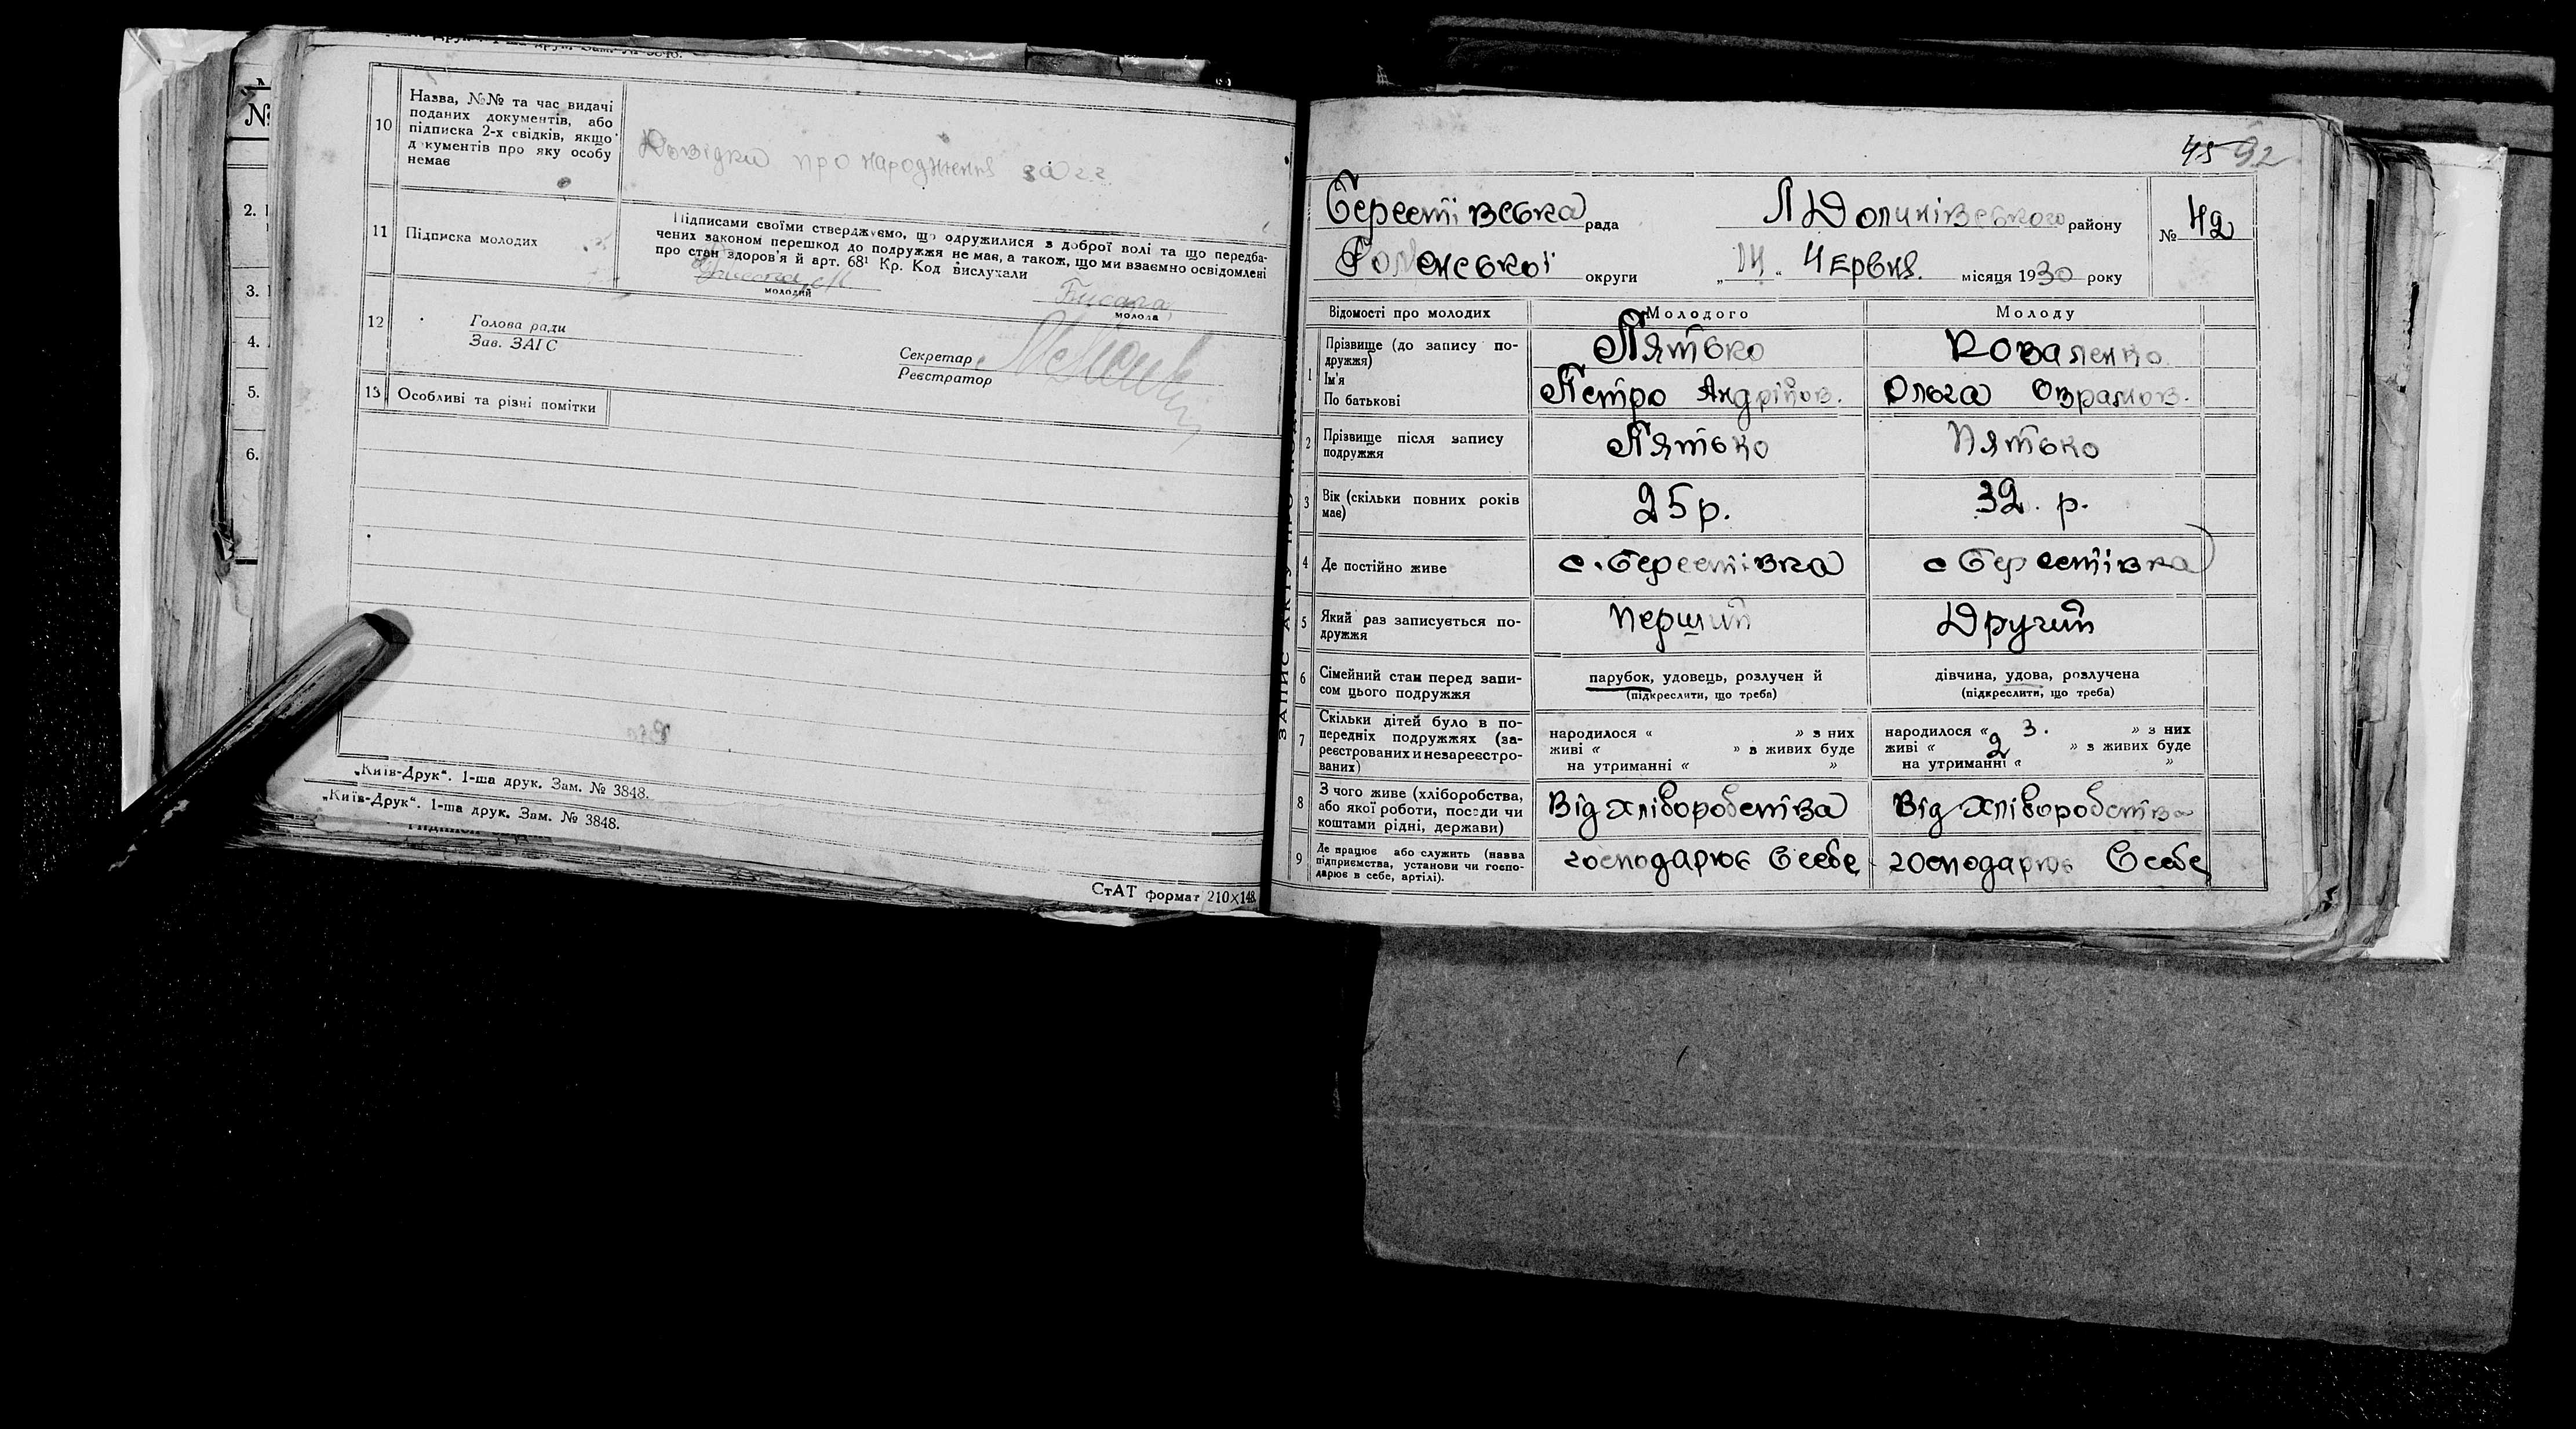 10 Назва, №№ та час видачі
поданих документів, або
підписка 2-х свідків, якщо
документів про яку особу
немає
Довідки про народження
11 Підписка молодих
Підписами своїми стверджуємо, що одружилися з доброї волі та що передба-
чених законом перешкод до подружжя не має, а також, що ми взаємно освідомлені
про стан здоров'я й арт. 68¹ Кр. Код вислухали
молодий
молода
12 Голова ради
Зав. ЗАГС
Секретар
Реєстратор
13 Особливі та різні помітки
„Київ-Друк“. 1-ша друк. Зам. № 3848.
„Київ-Друк“. 1-ша друк. Зам. № 3848.
СтАТ формат 210×148
№
2.
3.
4.
5.
6.
45 92
Берестівська рада Л Долинівського району
№ 42
Роменської округи „14“ Червня місяця 1930 року
Відомості про молодих Молодого Молоду
1 Прізвище (до запису по-
дружжя) Пятько Коваленко
Ім'я
По батькові Петро Андрійов. Ольга Оврамов.
2 Прізвище після запису
подружжя Пятько Пятько
3 Вік (скільки повних років
має) 25 р. 32 р.
4 Де постійно живе с. Берестівка с Берестівка
5 Який раз записується по-
дружжя Перший Другий
6 Сімейний стан перед запи-
сом цього подружжя
парубок, удовець, розлучен й
(підкреслити, що треба)
дівчина, удова, розлучена
(підкреслити, що треба)
7 Скільки дітей було в по-
передніх подружжях (за-
реєстрованих и незареєстро-
ваних)
народилося « » з них
живі « » з живих буде
на утриманні « »
народилося « 3. » з них
живі « 2 » з живих буде
на утриманні « »
8 З чого живе (хліборобства,
або якої роботи, посади чи
коштами рідні, держави)
Від хліборобства Від хліборобства
9 Де працює або служить (назва
підприємства, установи чи госпо-
дарює в себе, артілі).
господарює в себе господарює в себе